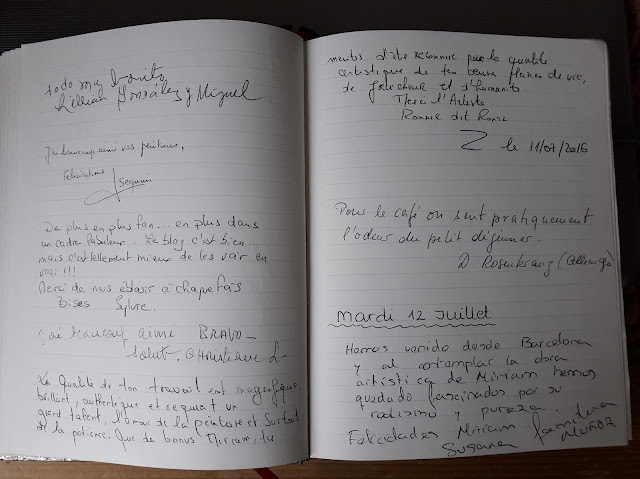 todo muy bonito
Lillian González y Miguel
J'ai beaucoup aimé vos peintures,
Félicitations
De plus en plus fan... en plus dans
un cadre fabuleux.. Le blog c'est bien...
mais c'est tellement mieux de les voir en
vrai !!!
Merci de nous éblouir à chaque fois
Bises Sylvie.
J'ai beaucoup aimé BRAVO
Salut. Christiane L.
La qualité de ton travail est magnifique,
brillant, authentique et requiert un
grand talent, l'amour de la peinture et surtout
de la patience. Que de bonus Miriam, tu
mérites d'être reconnue par la qualité
artistique de tes œuvres pleines de vie,
de fraîcheur et d'humanité.
Merci l'Artiste
Ronnie dit Ronnie
le 11/07/2016
Pour le café on sent pratiquement
l'odeur du petit déjeuner.
D. Rosenkranz (Allemagne)
Mardi 12 Juillet
Hemos venido desde Barcelona
y al contemplar la obra
artística de Miriam hemos
quedado fascinados por su
realismo y pureza.
Felicidades Miriam
Susana familia
MUÑOZ